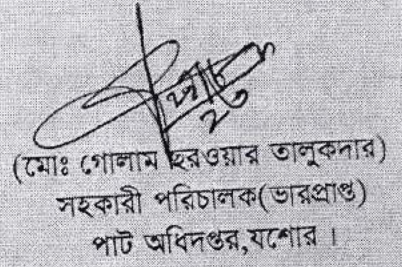 (মোঃ গোলাম ছরওয়ার তালুকদার)
সহকারী পরিচালক(ভারপ্রাপ্ত)
পাট অধিদপ্তর,যশোর ।